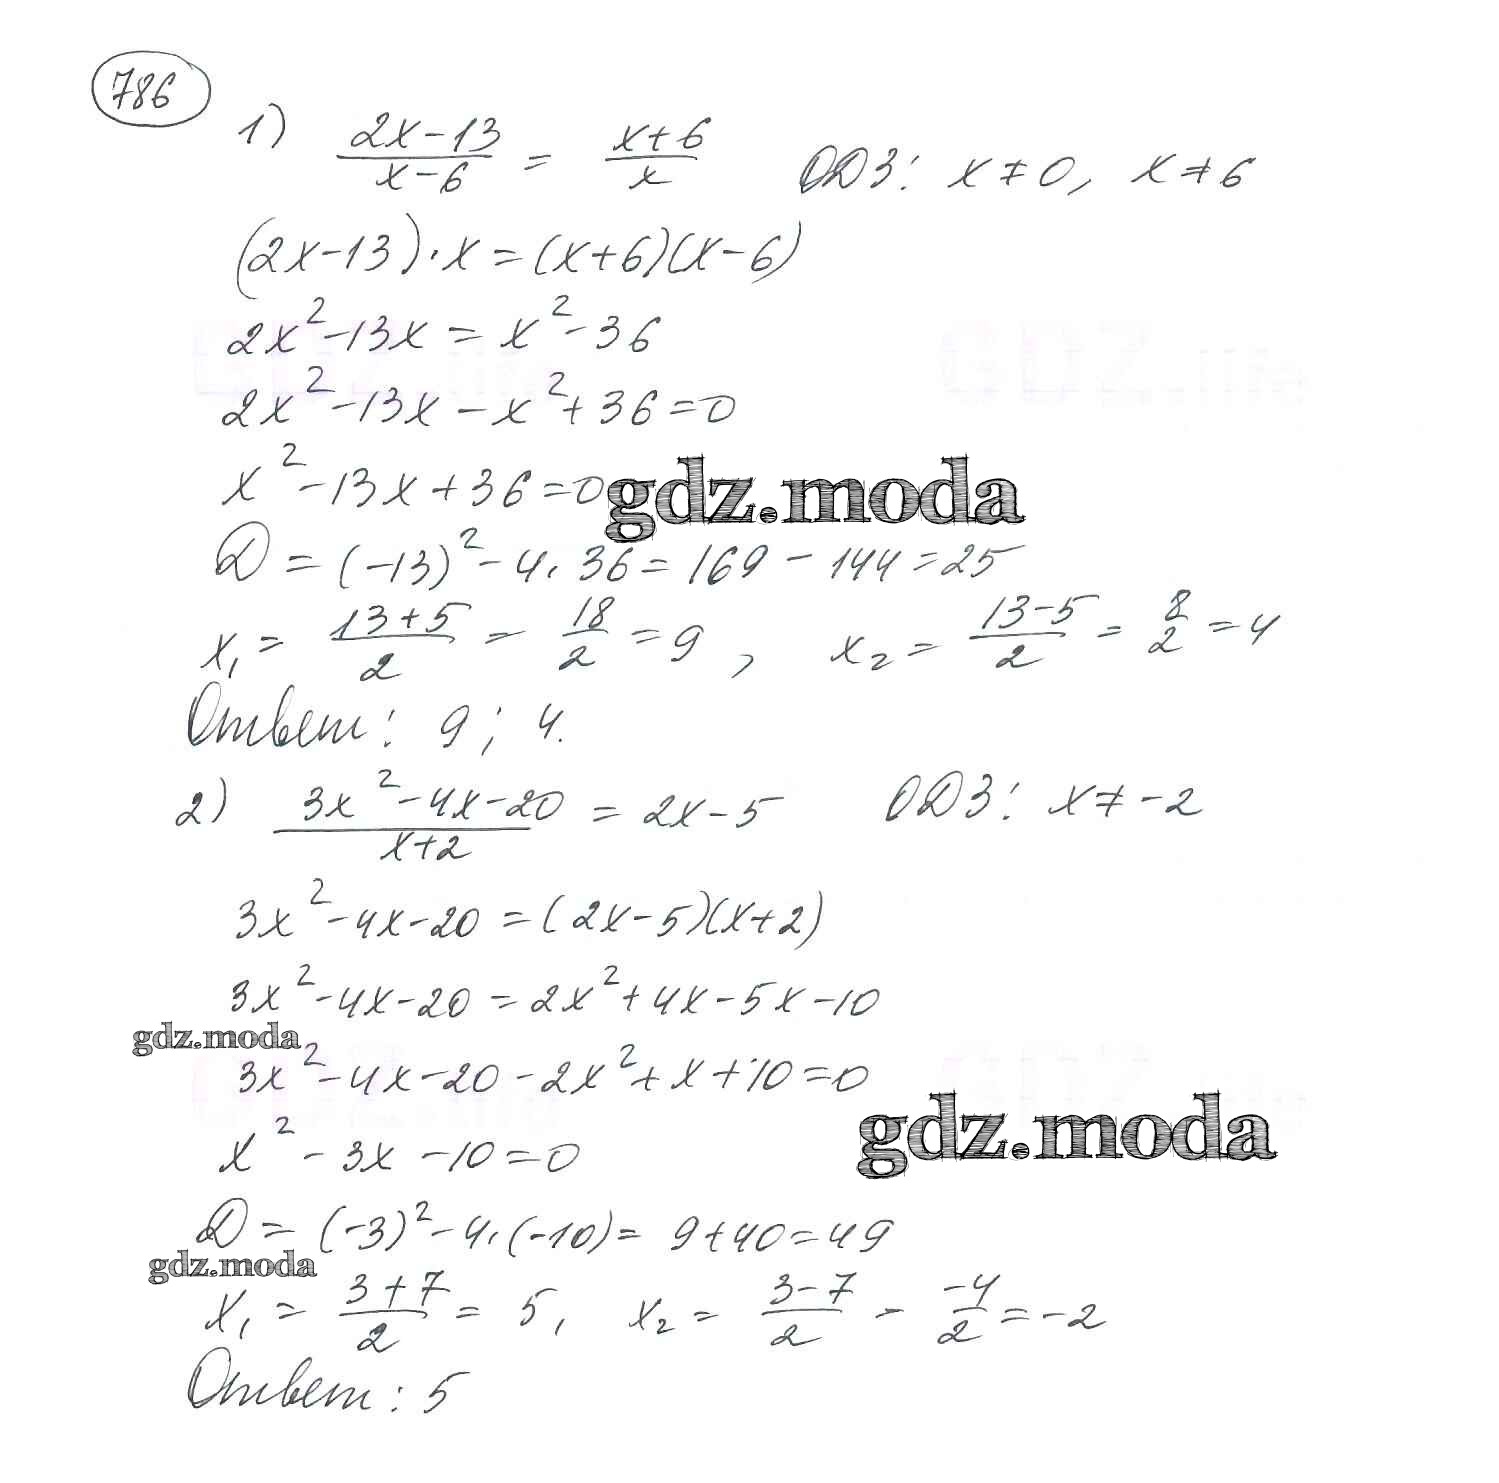 786
1) (2x-13)/(x-6) = (x+6)/x ОДЗ: x≠0, x≠6
(2x-13)·x=(x+6)(x-6)
2x²-13x = x²-36
2x²-13x-x²+36=0
x²-13x+36=0
gdz.moda
D = (-13)²-4·36=169-144=25
x₁ = (13+5)/2 = 18/2 = 9, x₂ = (13-5)/2 = 8/2 = 4
Ответ: 9; 4.
2) (3x²-4x-20)/(x+2) = 2x-5 ОДЗ: x≠-2
3x²-4x-20=(2x-5)(x+2)
3x²-4x-20=2x²+4x-5x-10
gdz.moda
3x²-4x-20-2x²+x+10=0
gdz.moda
x²-3x-10=0
D = (-3)²-4·(-10)= 9+40=49
gdz.moda
x₁ = (3+7)/2 = 5, x₂ = (3-7)/2 - -4/2 = -2
Ответ: 5